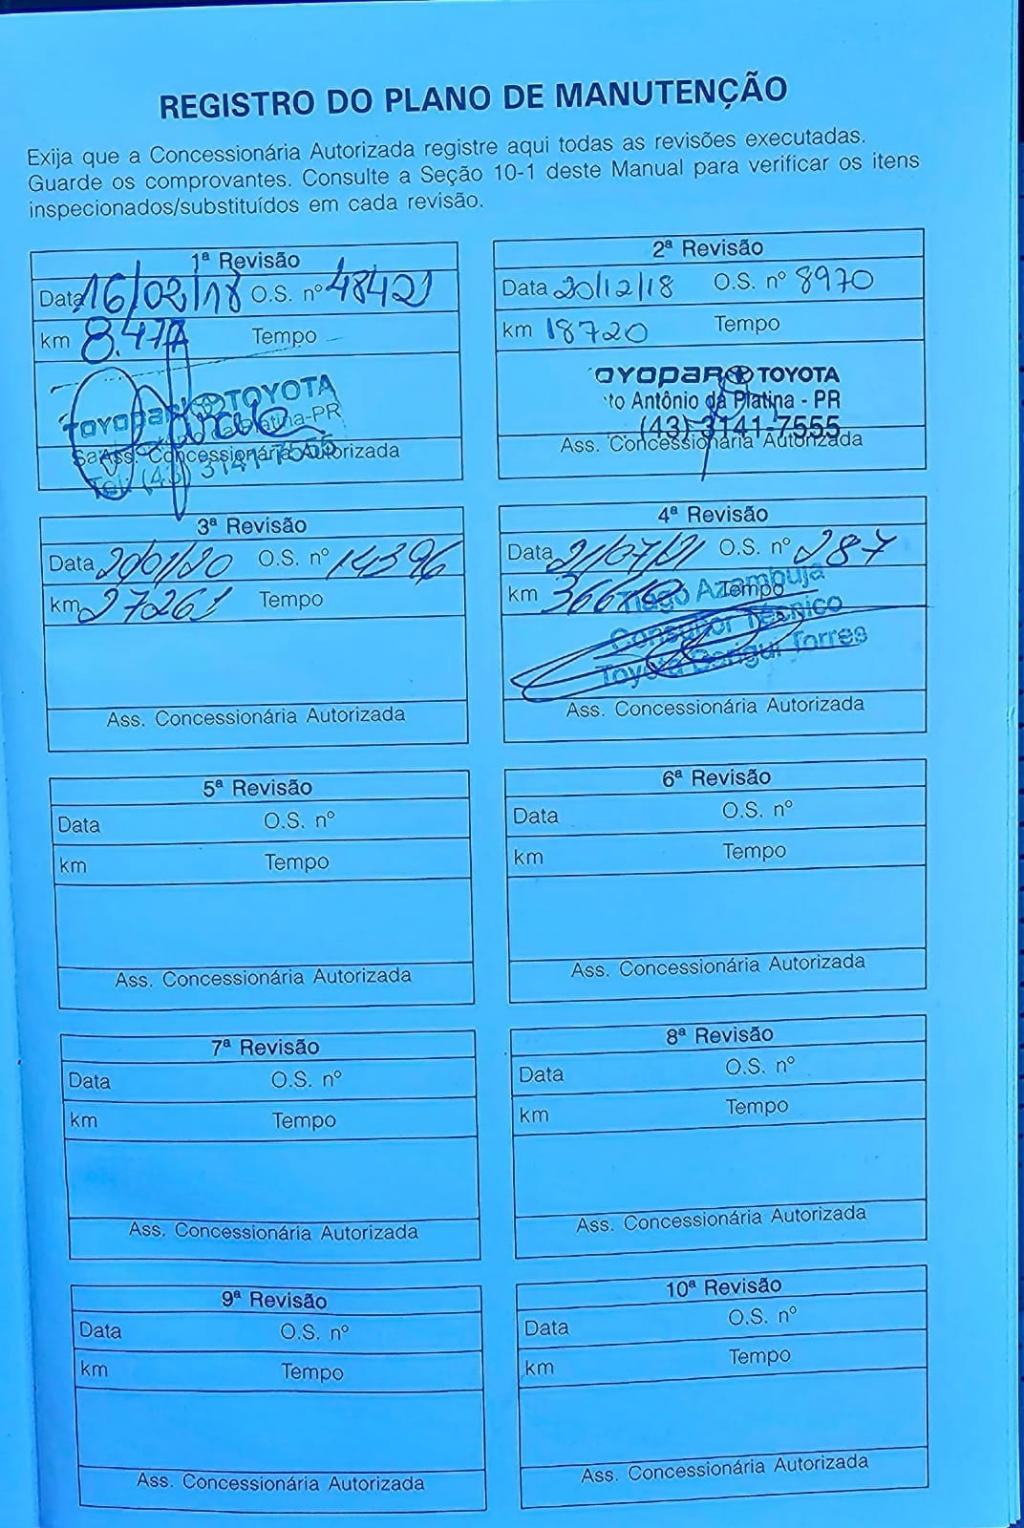 REGISTRO DO PLANO DE MANUTENÇÃO
Exija que a Concessionária Autorizada registre aqui todas as revisões executadas.
Guarde os comprovantes. Consulte a Seção 10-1 deste Manual para verificar os itens
inspecionados/substituídos em cada revisão.
1ª Revisão
Data 16/02/18 O.S. nº 48421
km Tempo
TOYOTA
Platina-PR
Ass. Concessionária Autorizada
Tel: (43) 3141-7555
2ª Revisão
Data 20/12/18 O.S. nº 8970
km 18720 Tempo
OYOPAR TOYOTA
to Antônio da Platina - PR
(43) 3141-7555
Ass. Concessionária Autorizada
3ª Revisão
Data O.S. nº 14396
km 27261 Tempo
Ass. Concessionária Autorizada
4ª Revisão
Data 21/07/21 O.S. nº 287
km Tempo
Tiago Azambuja
Consultor Técnico
Toyota Torres
Ass. Concessionária Autorizada
5ª Revisão
Data O.S. nº
km Tempo
Ass. Concessionária Autorizada
6ª Revisão
Data O.S. nº
km Tempo
Ass. Concessionária Autorizada
7ª Revisão
Data O.S. nº
km Tempo
Ass. Concessionária Autorizada
8ª Revisão
Data O.S. nº
km Tempo
Ass. Concessionária Autorizada
9ª Revisão
Data O.S. nº
km Tempo
Ass. Concessionária Autorizada
10ª Revisão
Data O.S. nº
km Tempo
Ass. Concessionária Autorizada